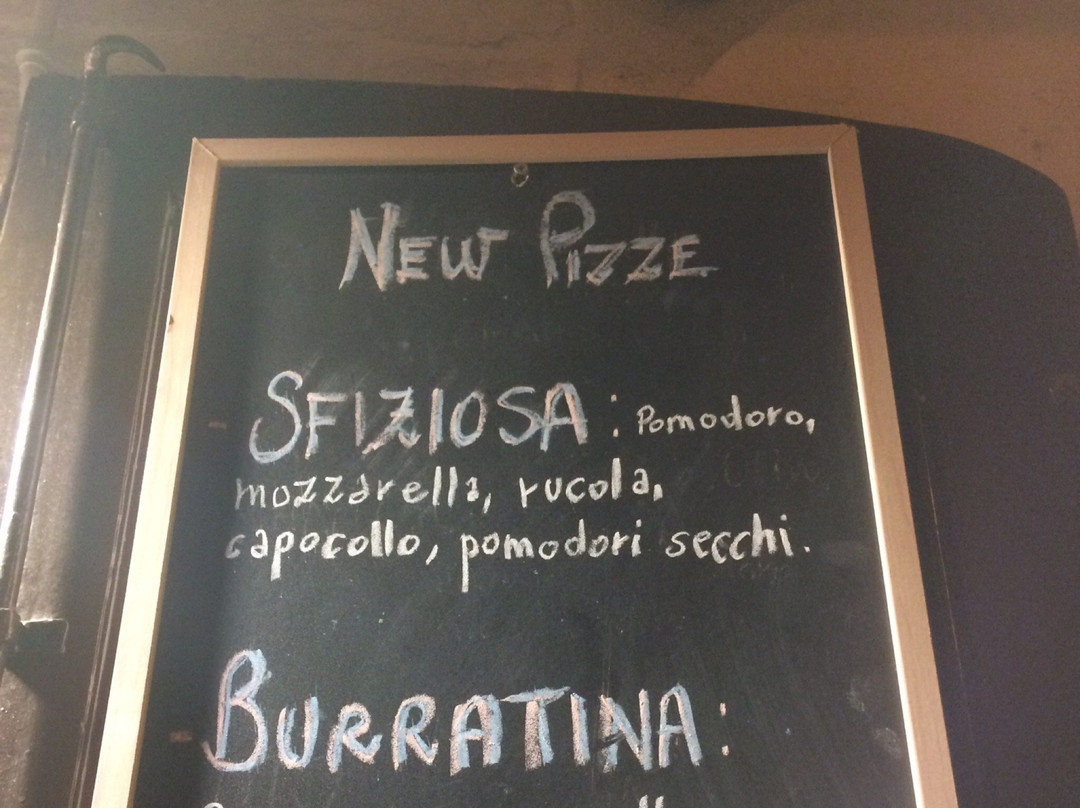 NEW PIZZE
SFIZIOSA: Pomodoro,
mozzarella, rucola,
capocollo, pomodori secchi.
BURRATINA: